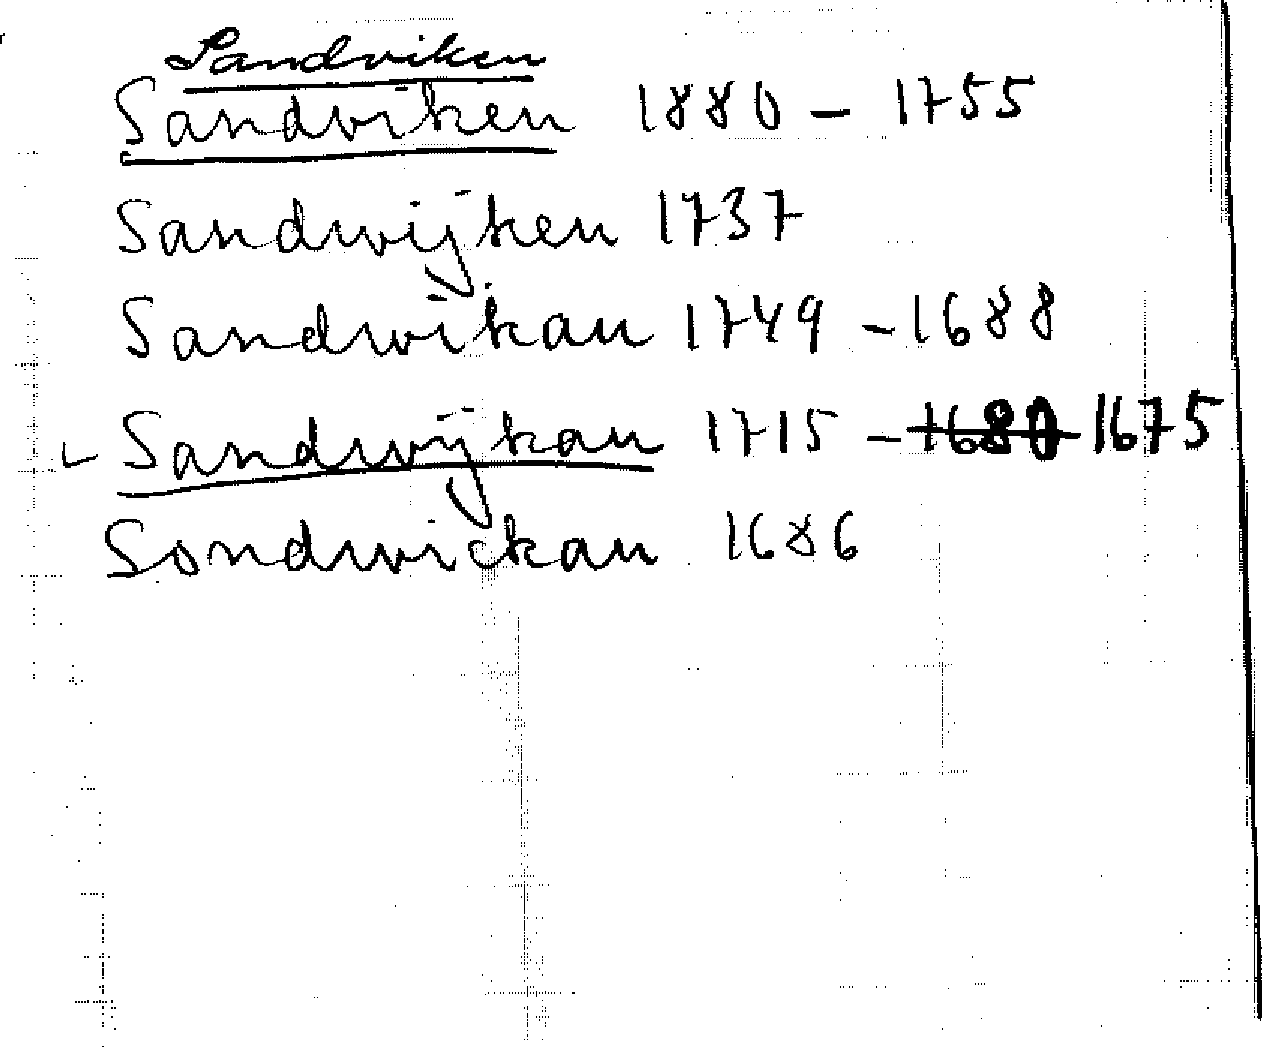 Sandviken
Sandviken 1880 - 1755
Sandwijken 1737
Sandwikan 1749 - 1688
Sandwijkan 1715 - 1680 1675
Sondwickan 1686